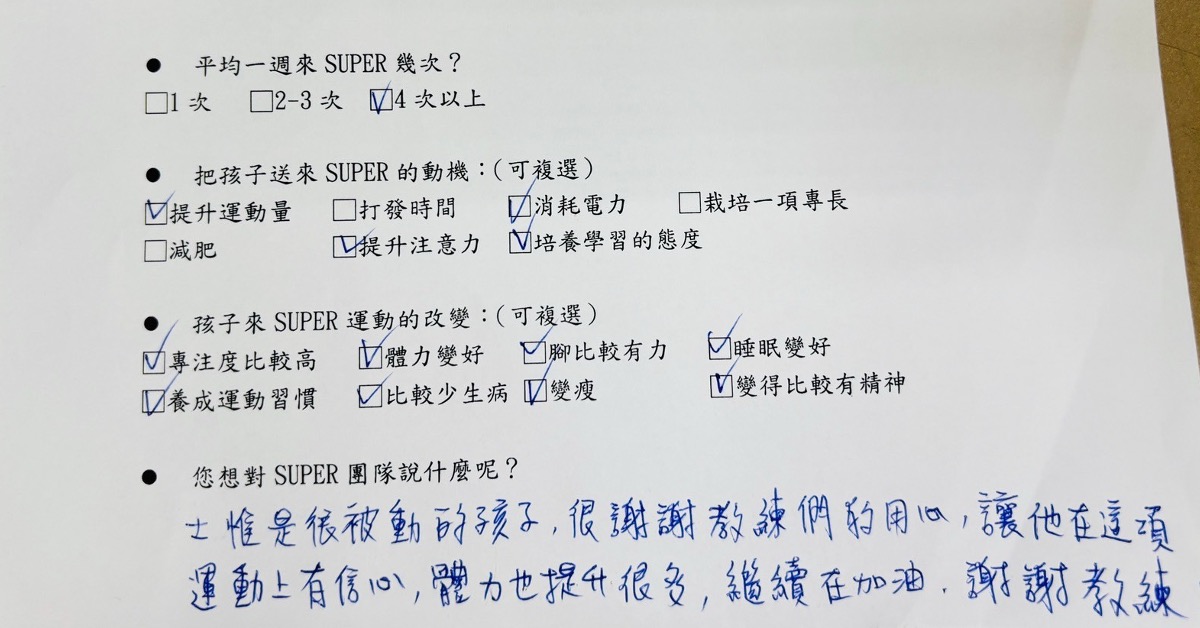 ● 平均一週來 SUPER 幾次？
□1 次 □2-3 次 ☑4 次以上
● 把孩子送來 SUPER 的動機：(可複選)
☑提升運動量 □打發時間 ☑消耗電力 □栽培一項專長
□減肥 ☑提升注意力 ☑培養學習的態度
● 孩子來 SUPER 運動的改變：(可複選)
☑專注度比較高 ☑體力變好 ☑腳比較有力 ☑睡眠變好
☑養成運動習慣 ☑比較少生病 ☑變瘦 ☑變得比較有精神
● 您想對 SUPER 團隊說什麼呢？
士惟是很被動的孩子，很謝謝教練們的用心，讓他在這項
運動上有信心，體力也提升很多，繼續在加油．謝謝教練